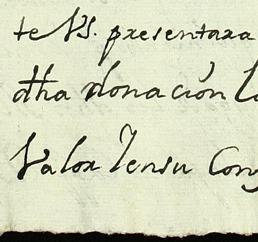 te VS. presentara
dha donación L
Valor Yensu Con